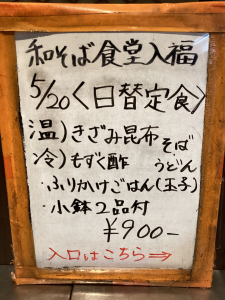 和そば食堂入福
5/20〈日替定食〉
温)きざみ昆布 そば
冷)もずく酢 うどん
・ふりかけごはん(玉子)
・小鉢2品付
¥900-
入口はこちら⇒